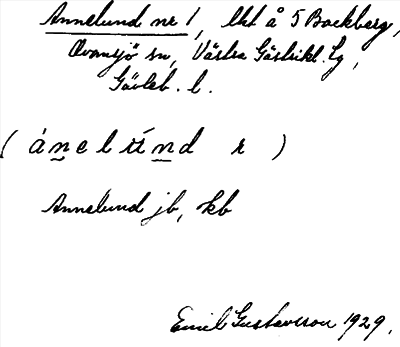 Annelund nr 1, lht å 5 Backberg,
Ovansjö sn, Västra Gästrikl. tg,
Gävleb. l.
(ánelúnd r)
Annelund jb, kb
Emil Gustavsson 1929.